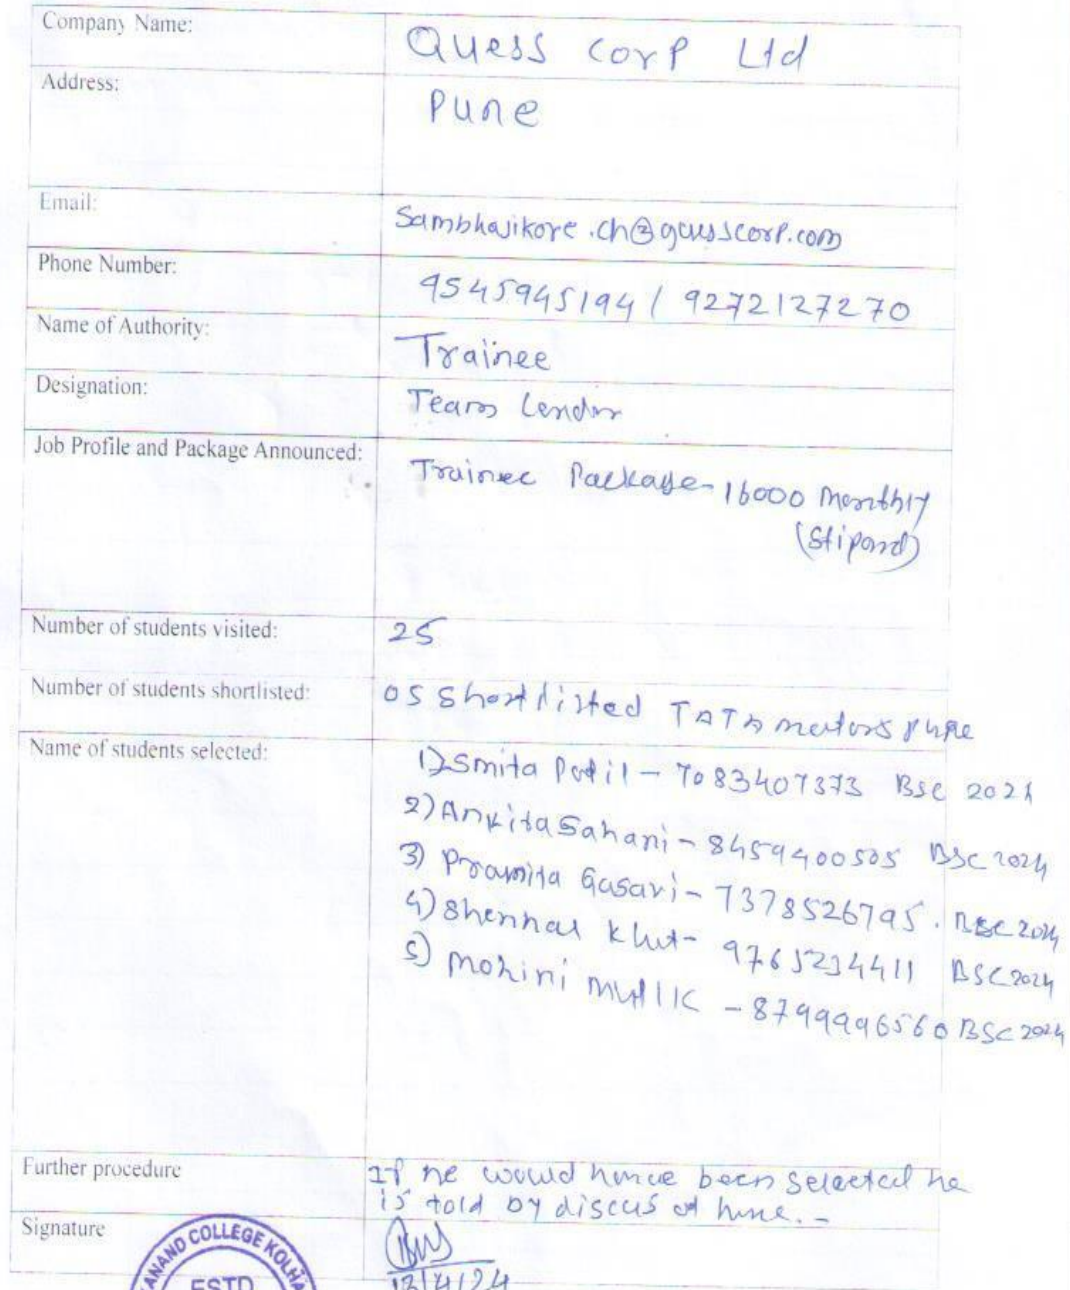 Company Name: Quess Corp Ltd
Address: Pune
Email: Sambhajikore.ch@quesscorp.com
Phone Number: 9545945194 / 9272127270
Name of Authority: Trainee
Designation: Team Leader
Job Profile and Package Announced: Trainee Package - 16000 Monthly
(Stipand)
Number of students visited: 25
Number of students shortlisted: 05 Shortlisted TATA motors Pune
Name of students selected: 1) Smita Patil - 7083407373 BSC 2024
2) Ankita Sahani - 8459400505 BSC 2024
3) Pramita Gasavi - 7378526795. BSC 2024
4) Shennal Khut - 9765234411 BSC 2024
5) Mohini - 8799996560 BSC 2024
Further procedure If he would been selected he
is told by discus at
Signature
13/4/24
ANAND COLLEGE KOLHA
ESTD